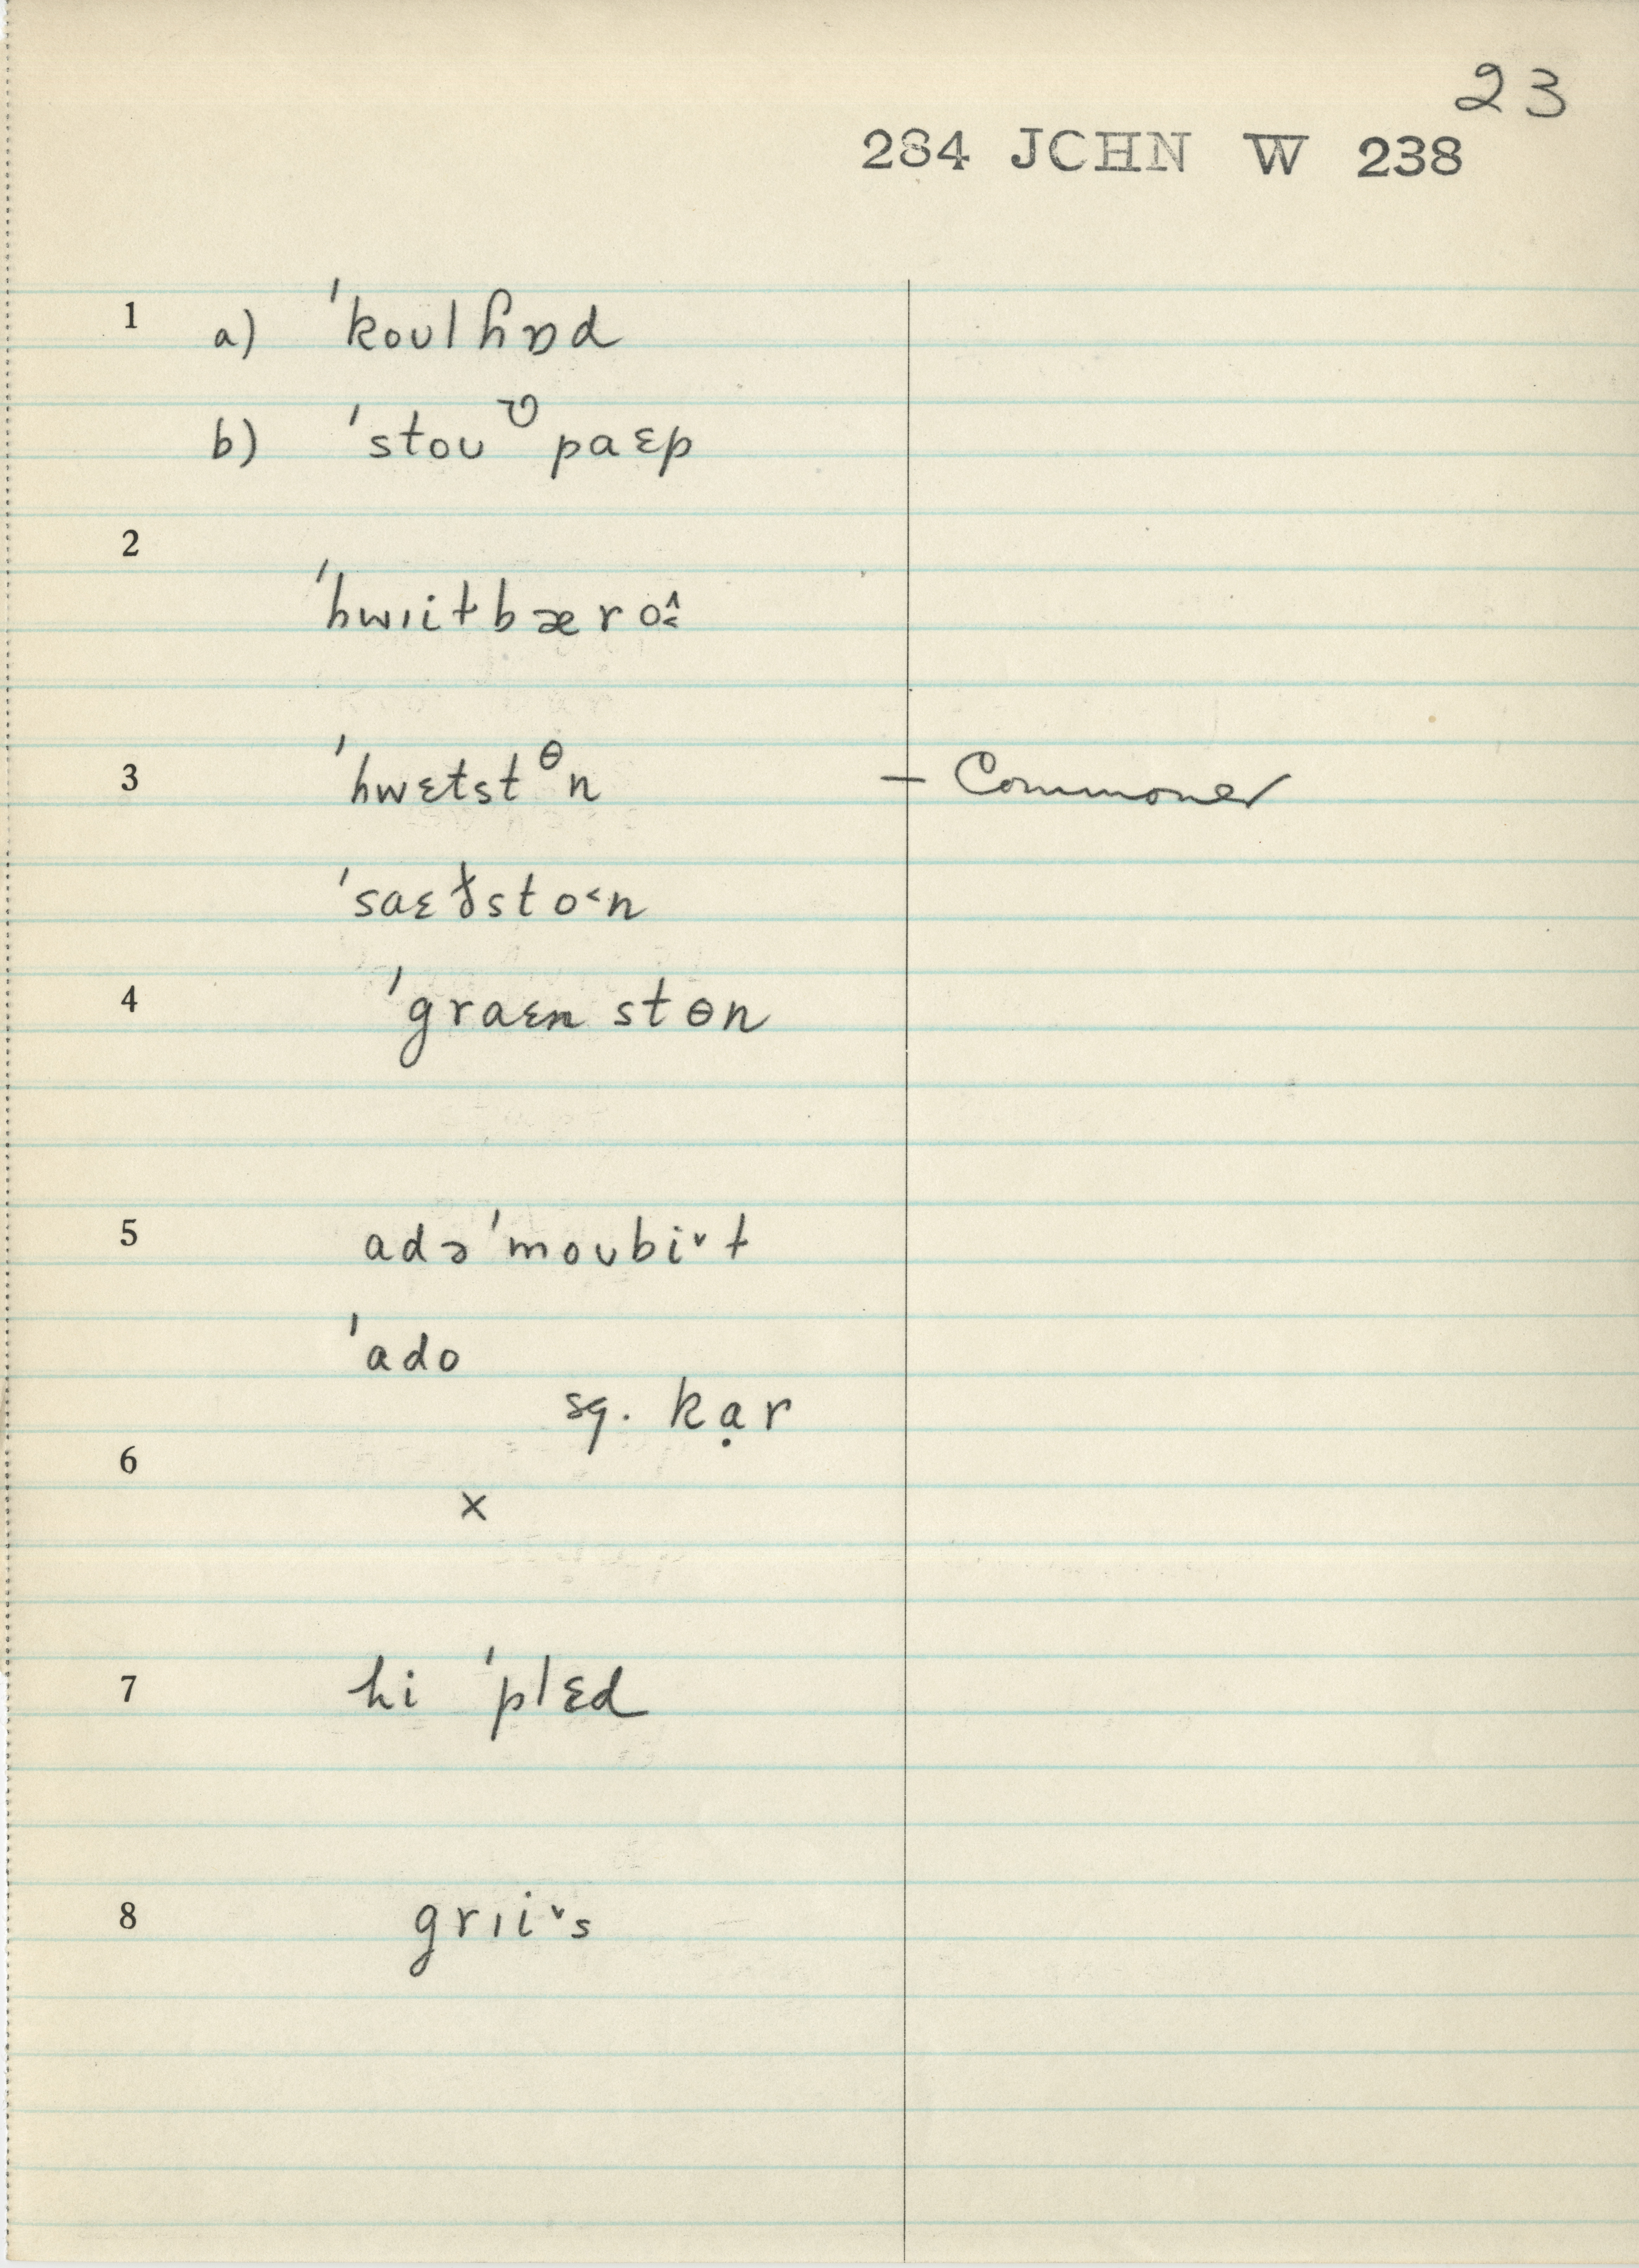 23
284 JOHN W 238
1 a) ˈkoʊlɦɒd
b) ˈstoʊ ʊ paɛp
2
ˈhwɪitbæroˆ˂
3 ˈhwɛtstᶿn — Commoner
ˈsaɛðsto˂n
4 ˈgraɛnstɵn
5 adəˈmoʊbi˅t
ˈado
sq. kạr
6
x
7 hi ˈplɛd
8 grɪi˅s